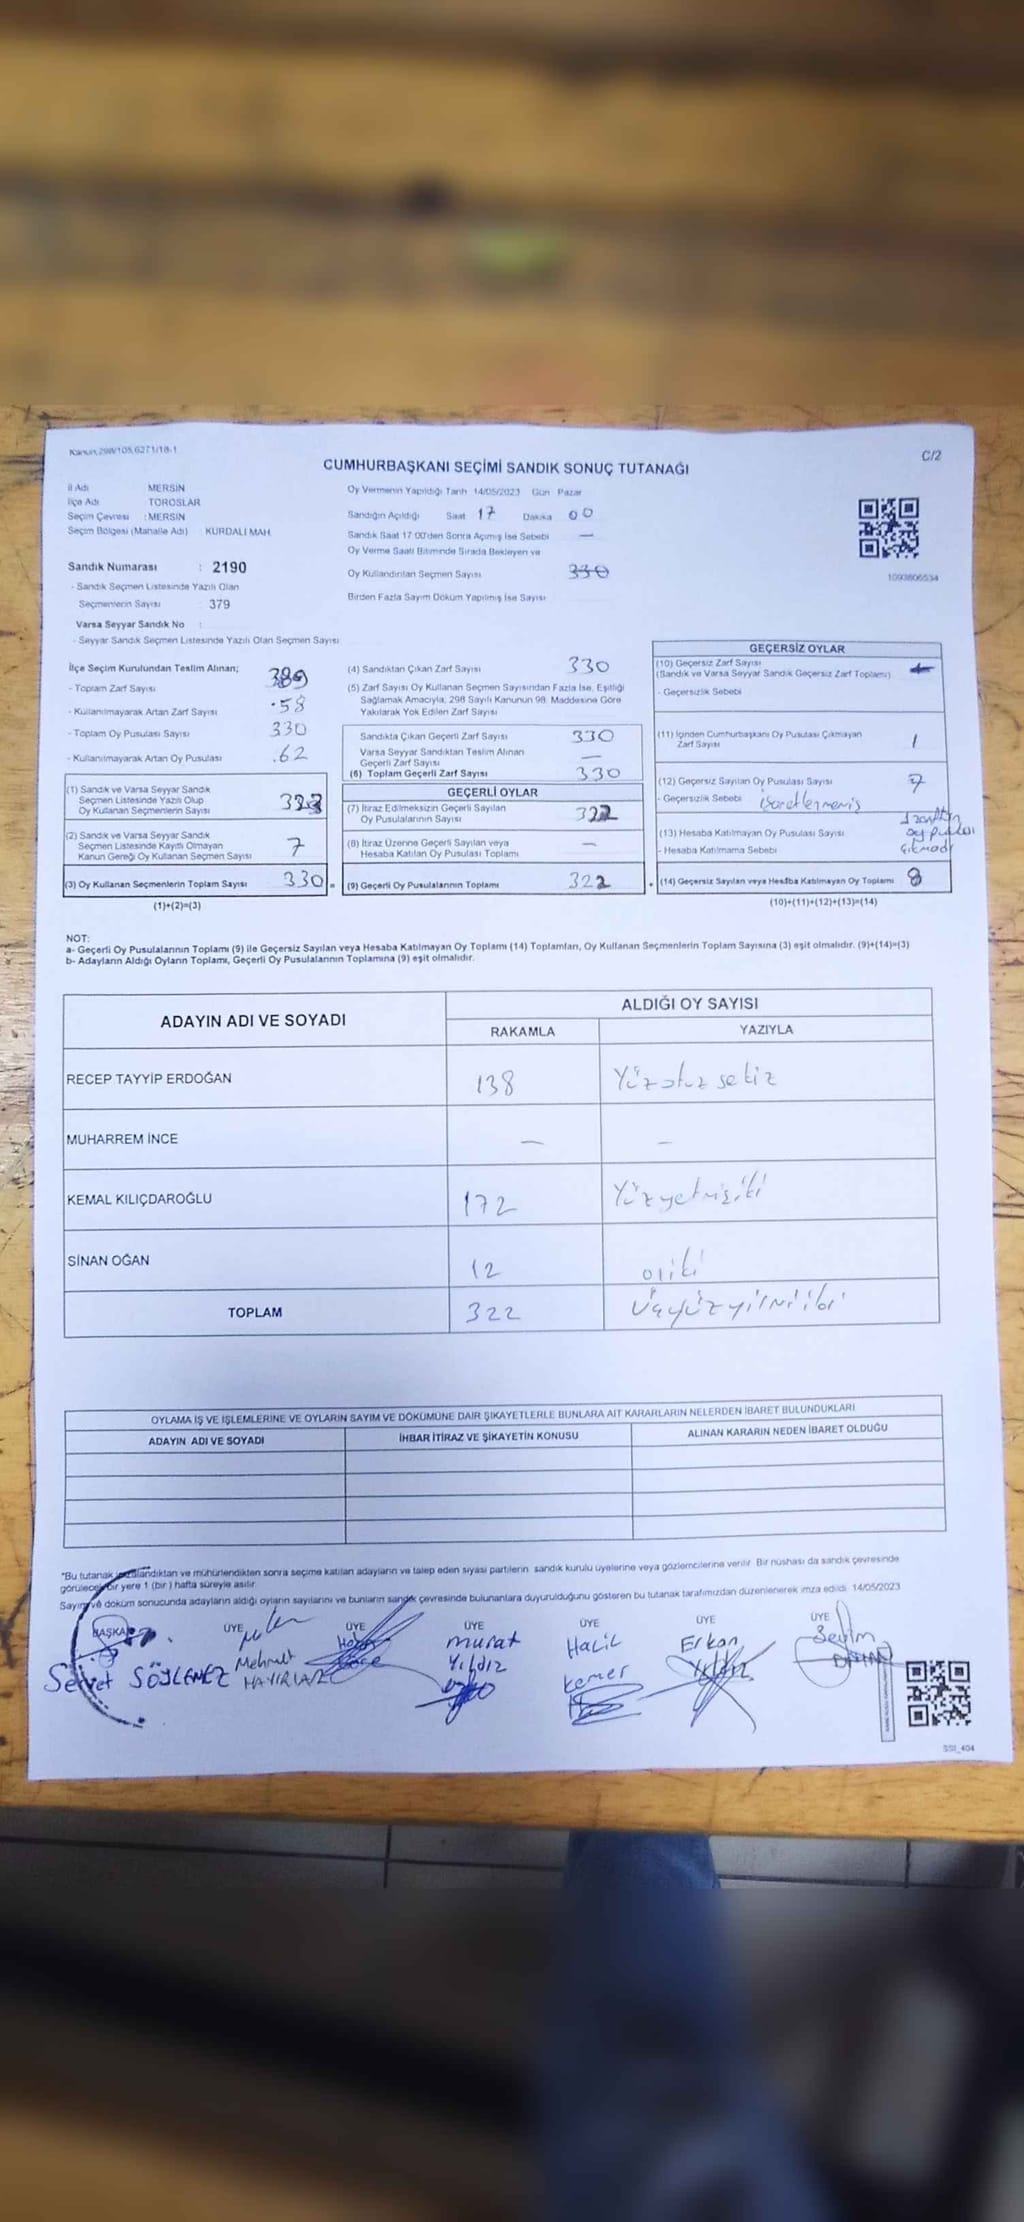 Kanun:298/105,6271/18-1
C/2
CUMHURBAŞKANI SEÇİMİ SANDIK SONUÇ TUTANAĞI
İl Adı MERSİN
İlçe Adı TOROSLAR
Seçim Çevresi : MERSİN
Seçim Bölgesi (Mahalle Adı) KURDALİ MAH.
Sandık Numarası : 2190
- Sandık Seçmen Listesinde Yazılı Olan
Seçmenlerin Sayısı 379
Varsa Seyyar Sandık No :
- Seyyar Sandık Seçmen Listesinde Yazılı Olan Seçmen Sayısı
Oy Vermenin Yapıldığı Tarih 14/05/2023 Gün Pazar
Sandığın Açıldığı Saat 17 Dakika 00
Sandık Saat 17:00'den Sonra Açımış İse Sebebi —
Oy Verme Saati Bitiminde Sırada Bekleyen ve
Oy Kullandırılan Seçmen Sayısı 330
Birden Fazla Sayım Döküm Yapılmış İse Sayısı
1093806534
İlçe Seçim Kurulundan Teslim Alınan;
- Toplam Zarf Sayısı
- Kullanılmayarak Artan Zarf Sayısı .58
- Toplam Oy Pusulası Sayısı 330
- Kullanılmayarak Artan Oy Pusulası .62
(1) Sandık ve Varsa Seyyar Sandık
Seçmen Listesinde Yazılı Olup
Oy Kullanan Seçmenlerin Sayısı 323
(2) Sandık ve Varsa Seyyar Sandık
Seçmen Listesinde Kayıtlı Olmayan
Kanun Gereği Oy Kullanan Seçmen Sayısı 7
(3) Oy Kullanan Seçmenlerin Toplam Sayısı 330 =
(1)+(2)=(3)
(4) Sandıktan Çıkan Zarf Sayısı 330
(5) Zarf Sayısı Oy Kullanan Seçmen Sayısından Fazla İse, Eşitliği
Sağlamak Amacıyla; 298 Sayılı Kanunun 98. Maddesine Göre
Yakılarak Yok Edilen Zarf Sayısı
Sandıkta Çıkan Geçerli Zarf Sayısı 330
Varsa Seyyar Sandıktan Teslim Alınan
Geçerli Zarf Sayısı —
(6) Toplam Geçerli Zarf Sayısı 330
GEÇERLİ OYLAR
(7) İtiraz Edilmeksizin Geçerli Sayılan
Oy Pusulalarının Sayısı 322
(8) İtiraz Üzerine Geçerli Sayılan veya
Hesaba Katılan Oy Pusulası Toplamı —
(9) Geçerli Oy Pusulalarının Toplamı 322 +
GEÇERSİZ OYLAR
(10) Geçersiz Zarf Sayısı
(Sandık ve Varsa Seyyar Sandık Geçersiz Zarf Toplamı)
- Geçersizlik Sebebi
(11) İçinden Cumhurbaşkanı Oy Pusulası Çıkmayan
Zarf Sayısı 1
(12) Geçersiz Sayılan Oy Pusulası Sayısı 7
- Geçersizlik Sebebi işaretlenmemiş
(13) Hesaba Katılmayan Oy Pusulası Sayısı
- Hesaba Katılmama Sebebi
1 zarftan
oy pusulası
çıkmadı
(14) Geçersiz Sayılan veya Hesaba Katılmayan Oy Toplamı 8
(10)+(11)+(12)+(13)=(14)
NOT:
a- Geçerli Oy Pusulalarının Toplamı (9) ile Geçersiz Sayılan veya Hesaba Katılmayan Oy Toplamı (14) Toplamları, Oy Kullanan Seçmenlerin Toplam Sayısına (3) eşit olmalıdır. (9)+(14)=(3)
b- Adayların Aldığı Oyların Toplamı, Geçerli Oy Pusulalarının Toplamına (9) eşit olmalıdır.
ADAYIN ADI VE SOYADI
ALDIĞI OY SAYISI
RAKAMLA YAZIYLA
RECEP TAYYİP ERDOĞAN 138 Yüzotuz sekiz
MUHARREM İNCE — —
KEMAL KILIÇDAROĞLU 172 Yüzyetmişiki
SİNAN OĞAN 12 oniki
TOPLAM 322 üçyüzyirmiiki
OYLAMA İŞ VE İŞLEMLERİNE VE OYLARIN SAYIM VE DÖKÜMÜNE DAİR ŞİKAYETLERLE BUNLARA AİT KARARLARIN NELERDEN İBARET BULUNDUKLARI
ADAYIN ADI VE SOYADI İHBAR İTİRAZ VE ŞİKAYETİN KONUSU ALINAN KARARIN NEDEN İBARET OLDUĞU
"Bu tutanak imzalandıktan ve mühürlendikten sonra seçime katılan adayların ve talep eden siyasi partilerin sandık kurulu üyelerine veya gözlemcilerine verilir. Bir nüshası da sandık çevresinde
görülecek bir yere 1 (bir) hafta süreyle asılır.
Sayım ve döküm sonucunda adayların aldığı oyların sayılarını ve bunların sandık çevresinde bulunanlara duyurulduğunu gösteren bu tutanak tarafımızdan düzenlenerek imza edildi. 14/05/2023
BAŞKAN ÜYE ÜYE ÜYE ÜYE ÜYE ÜYE
Servet SÖYLEMEZ
Mehmet
Murat
Yıldız
Halil
Kömer
Erkan
Yıldız
Sevim
SSI_404